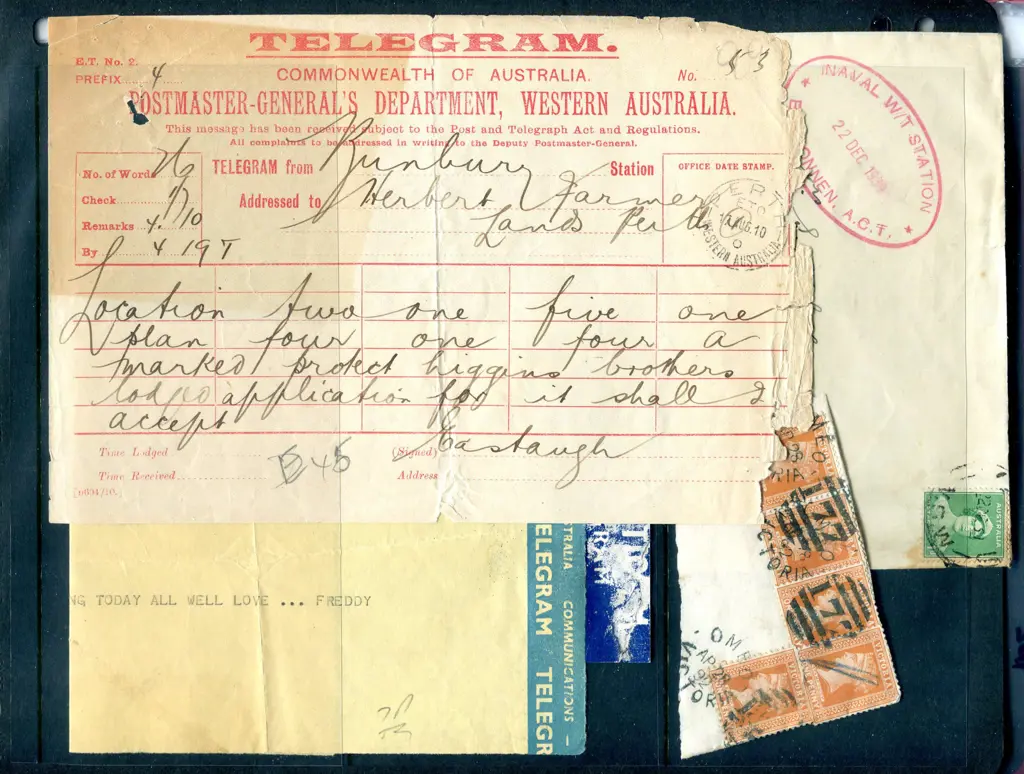 TELEGRAM.
E.T. No. 2.
PREFIX 4
COMMONWEALTH OF AUSTRALIA.
No. 53
POSTMASTER-GENERAL'S DEPARTMENT, WESTERN AUSTRALIA.
This message has been received subject to the Post and Telegraph Act and Regulations.
All complaints to be addressed in writing to the Deputy Postmaster-General.
No. of Words 26
TELEGRAM from Bunbury Station
OFFICE DATE STAMP.
Check
Addressed to Herbert Farmer
Remarks 4.
Lands Perth
By 4 19 T
PERTH
AUG.10
WESTERN AUSTRALIA
Location two one five one
plan four one four a
marked protect higgins brothers
lodged application for it shall I
accept
Time Lodged
(Signed) Eastaugh
Time Received
Address
NAVAL W/T STATION
22 DEC 1939
A.C.T.
AUSTRALIA
NG TODAY ALL WELL LOVE ... FREDDY
TRALIA COMMUNICATIONS —
ELEGRAM TELEGR
VICTORIA